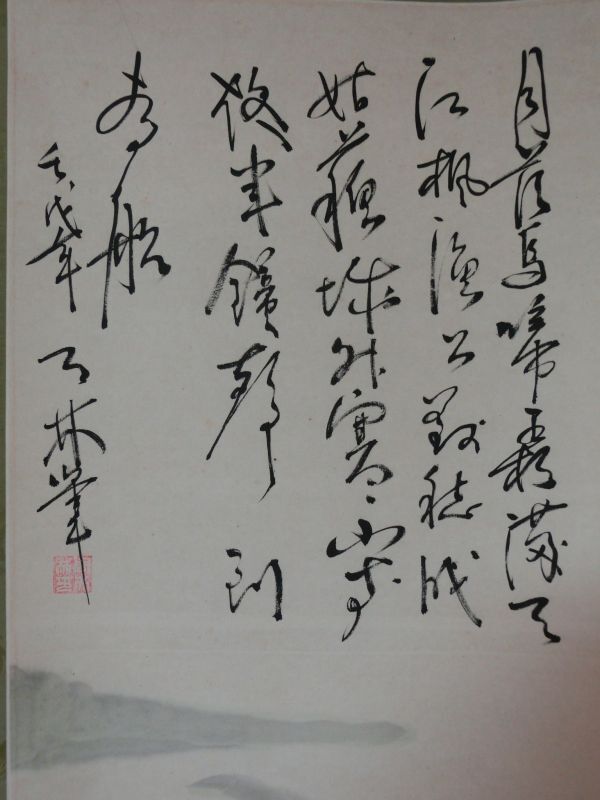 月落烏啼霜滿天
江楓漁火對愁眠
姑蘇城外寒山寺
夜半鐘聲到
客船
壬戌年 林筆